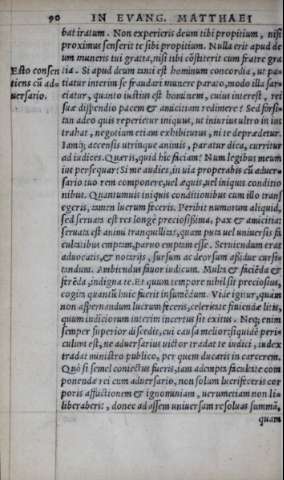 90 IN EVANG. MATTHAEI
bat iratum. Non experieris deum tibi propitium, nisi
proximus senserit te sibi propitium. Nulla erit apud de
um muneris tui gratia, nisi tibi cõstiterit cum fratre gra
Esto consen
tiens cũ ad
uersario.
tia. Si apud deum tanti est hominum concordia, ut pa-
tiatur interim se fraudari munere parato, modo illa sar-
ciatur, quanto iustius est hominum, cuius interest, rei
suæ dispendio pacem & amicitiam redimere? Sed forsi-
tan adeo quis reperietur iniquus, ut iniurius ultro in ius
trahat, negotium etiam exhibiturus, ni te depradetur.
Iamq; accensis utrinque animis, paratur dica, curritur
ad iudices. Quæris, quid hic faciam? Num legibus meum
ius persequar? Si me audies, in uia properabis cũ aduer-
sario tuo rem componere, uel æquis, uel iniquis conditio
nibus. Quantumuis iniquis conditionibus cum illo trans
egeris, tamen lucrum feceris. Peribit nummorum aliquid,
sed seruata est res longè preciosissima, pax & amicitia:
seruata est animi tranquillitas, quam puta uel uniuersis fa
cultatibus emptam, paruo emptam esse. Seruiendum erat
aduocatis, & notarijs, sursum ac deorsum assidue cursi-
tandum. Ambiendus fauor iudicum. Multa & faciẽda &
ferẽda, indigna te. Et quum tempore nihil sit preciosius,
cogita quantũ huic fuerit insumẽdum. Vide igitur, quàm
non aspernandum lucrum feceris, celeritate finiendæ litis,
quum iudiciorum interim incertus sit exitus. Neq; enim
semper superior discedit, cui causa melior: siquidẽ peri-
culum est, ne aduersarius uictor tradat te iudici, iudex
tradat ministro publico, per quem ducaris in carcerem.
Quò si semel coniectus fueris, iam adempta facultate com
ponendæ rei cum aduersario, non solum lucrifeceris cor
poris afflictionem & ignominiam, uerumetiam non li-
liberaberis, donec ad assem uniuersam resoluas summã,
quam